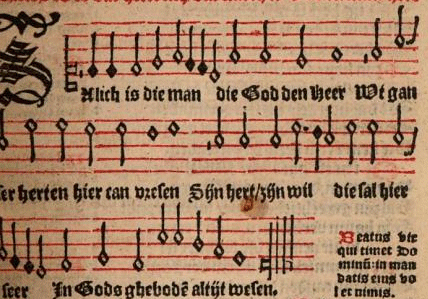 Alich is die man die God den Heer Wt gan
ser herten hier can vresen Sijn hert/zijn wil die sal hier
seer In Gods ghebodē altijt wesen.
Beatus vir
qui timet Do
minū: in man
datis eius vo
let nimis.